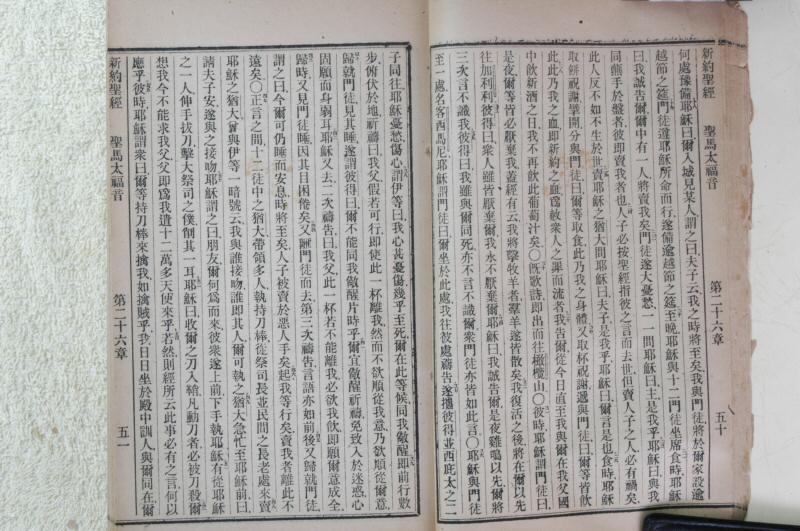 新約聖經 聖馬太福音 第二十六章 五十
何處豫備耶穌曰爾入城見某人謂之曰夫子云我之時將至矣我與門徒將於爾家設逾
越節之筵門徒遵耶穌所命而行遂備逾越節之筵至晚耶穌與十二門徒坐席食時耶穌
曰我誠告爾爾中有一人將賣我矣門徒遂大憂愁一一問耶穌曰主是我乎耶穌曰與我
同蘸手於盤者彼即賣我者也人子必按聖經指彼之言而去世但賣人子之人必有禍矣
此人反不如不生於世賣耶穌之猶大問耶穌曰夫子是我乎耶穌曰爾言是也食時耶穌
取餅祝謝擘開分與門徒曰爾等取食此乃我之身體又取杯祝謝遞與門徒曰爾等皆飲
此此乃我之血即新約之血爲赦衆人之罪而流者我告爾從今日直至我與爾在我父國
中飲新酒之日我不再飲此葡萄汁矣○既歌詩即出而往橄欖山○彼時耶穌謂門徒曰
是夜爾等皆必厭棄我蓋經有云我將擊牧羊者羣羊遂皆散矣我復活之後將在爾以先
往加利利彼得曰衆人雖皆厭棄爾我永不厭棄爾耶穌曰我誠告爾是夜雞鳴以先爾將
三次言不識我彼得曰我雖與爾同死亦不言不識爾衆門徒亦皆如此言○耶穌與門徒
至一處名客西馬尼耶穌謂門徒曰爾坐於此處我往彼處禱告遂攜彼得並西庇太之二
子同往耶穌憂愁傷心謂伊等曰我心甚憂傷幾乎至死爾在此等候同我儆醒即前行數
步俯伏於地祈禱曰我父假若可行即使此一杯離我然而不欲順從我意乃欲順從爾意
歸就門徒見其睡遂謂彼得曰爾不能同我儆醒片時乎爾宜儆醒祈禱免致入於迷惑心
固願而身弱耳耶穌又去二次禱告曰我父此一杯若不能離我必欲我飲即願爾意成全
歸時又見門徒睡因其目困倦矣又離門徒而去第三次禱告言語亦如前後又歸就門徒
謂之曰今爾可仍睡而安息時將至矣人子被賣於惡人手矣起我等行矣賣我者離此不
遠矣○正言之間十二徒中之猶大帶領多人執持刀棒從祭司長並民間之長老處來賣
耶穌之猶大曾與伊等一暗號云我與誰接吻誰即其人爾可執之猶大急忙至耶穌前曰
請夫子安遂與之接吻耶穌謂之曰朋友爾何爲而來彼衆遂上前下手執耶穌有從耶穌
之一人伸手拔刀擊大祭司之僕削其一耳耶穌曰收爾之刀入鞘凡動刀者必被刀殺爾
想我今不能求我父父即爲我遣十二萬多天使來乎若然則經所云此事必有之言何以
應乎彼時耶穌謂衆曰爾等持刀棒來擒我如擒賊乎我日日坐於殿中訓人與爾同在爾
新約聖經 聖馬太福音 第二十六章 五一